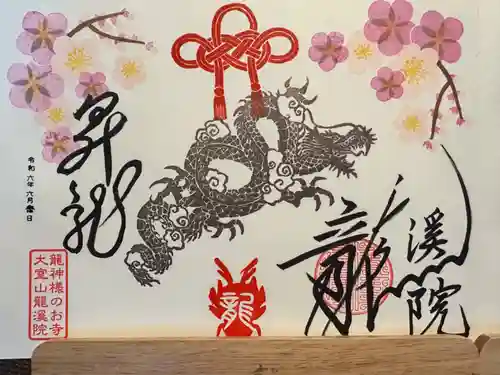 昇龍
令和六年六月壹日
龍神様のお寺
大室山龍溪院
龍
龍溪院